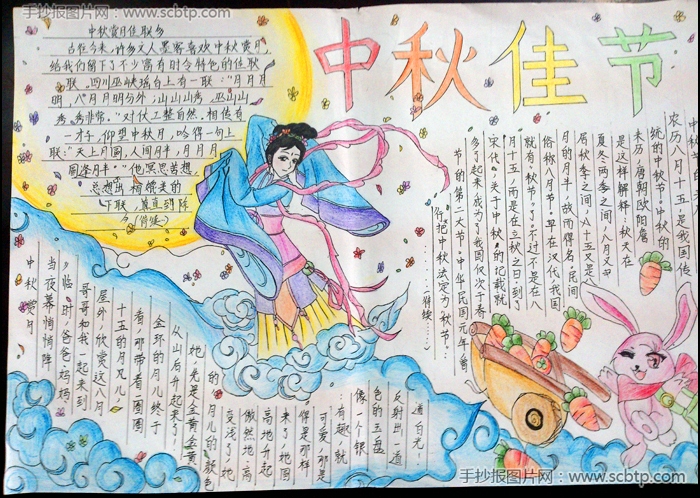 手抄报图片网 - www.scbtp.com
中秋佳节
中秋赏月佳联多
古往今来，许多文人墨客喜欢中秋赏月，
给我们留下了不少富有时令特色的佳联
联。四川巫峡瑶台上有一联："月月月
明，八月月明分外；山山山秀，巫山山
秀秀非常。"对仗工整自然。相传有
一才子，仰望中秋月，吟得一句上
联："天上月圆，人间月半，月月月
圆逢月半。"他冥思苦想，
总想出相媲美的
下联，直到除
夕（待续）
农历八月十五是我国传
统的中秋节。中秋的
来历唐朝欧阳詹
是这样解释：秋天在
夏冬两季之间，八月又
居秋季之间，八十五又是八
月的月半，故而得名。民间
俗称八月节。早在汉代我国
就有"秋节"了。不过不是在八
月十五，而是在立秋之日。到
宋代，关于中秋的记载就
多了起来，成为了我国仅次于春
节的第二大节。中华民国元年，
把中秋法定为"秋节"
（待续……）
中秋赏月
当夜幕悄悄降
临时，爸爸妈妈
哥哥和我一起来到
屋外，欣赏这八月
十五的月儿
看，那带着一圈圈
金环的月儿终于
从山后升起来了。
她先是金黄金黄
的月儿的颜色
变浅了，她
傲然地高
高地升起
来了，她圆
得是那样
可爱，那
有趣，就
像一个银
色的玉盘
反射出一道
道白光！
手抄报图片网 - www.scbtp.com